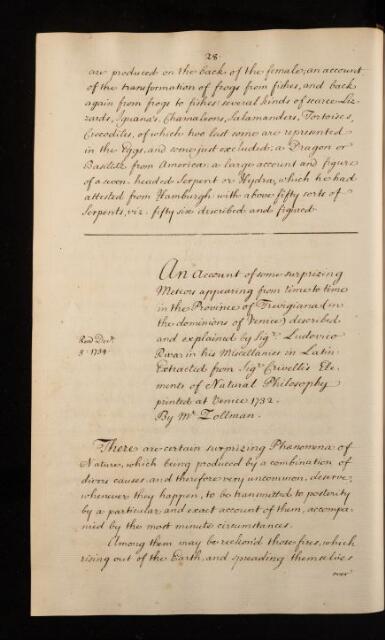 28
are produced on the back of the female; an account
of the transformation of frogs from fishes, and back
again from frogs to fishes: several kinds of scarce Liz-
zards, Iguana's, Chamaleons, Salamanders, Tortoises,
Crocodiles, of which two last some are represented
in the Eggs, and some just excluded; a Dragon or
Basilisk from America; a large account and figure
of a seven-headed Serpent or Hydra, which he had
attested from Hamburgh: with above fifty sorts of
Serpents, viz. fifty six described and figured.
An Account of some surprizing
Meteors appearing from time to time
in the Province of Trevigiana (in
the dominions of Venice) described
Read Decr.
5. 1734.
and explained by Sigr. Ludovico
Riva in his Miscellanies in Latin.
Extracted from Sigr. Crivelli's Ele-
ments of Natural Philosophy
printed at Venice 1732.
By Mr. Zollman.
There are certain surprizing Phænomena of
Nature, which being produced by a combination of
divers causes, and therefore very uncommon, deserve,
whenever they happen, to be transmitted to posterity
by a particular and exact account of them, accompa-
nied by the most minute circumstances.
Among them may be reckon'd those fires, which
rising out of the Earth, and spreading themselves
over